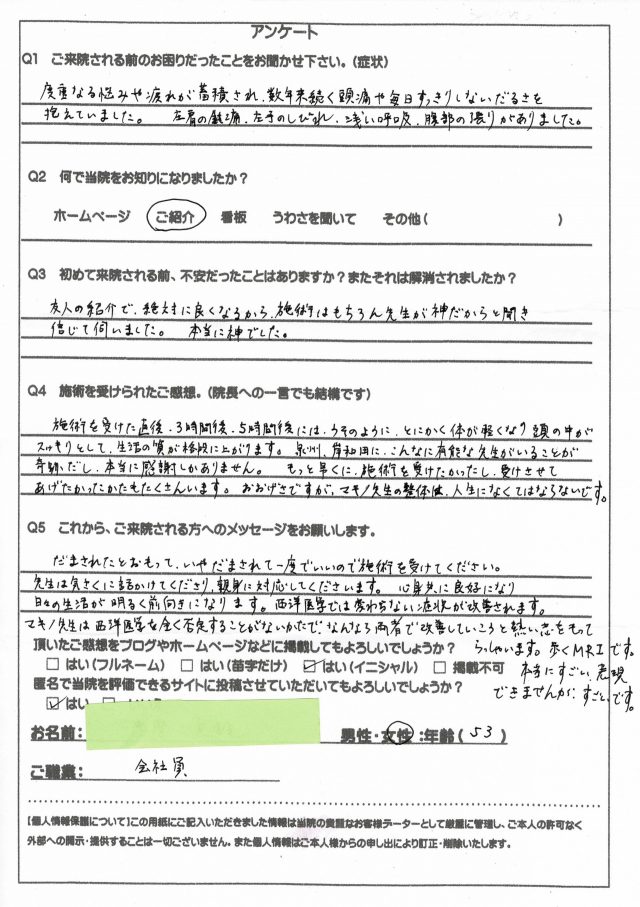 アンケート
Q1　ご来院される前のお困りだったことをお聞かせ下さい。(症状)
度重なる悩みや疲れが蓄積され、数年来続く頭痛や毎日すっきりしないだるさを
抱えていました。　左肩の激痛、左手のしびれ、浅い呼吸、腹部の張りがありました。
Q2　何で当院をお知りになりましたか？
ホームページ　ご紹介　看板　うわさを聞いて　その他(　　　　　　　　)
Q3　初めて来院される前、不安だったことはありますか？またそれは解消されましたか？
友人の紹介で、絶対に良くなるから、施術はもちろん先生が神だからと聞き
信じて伺いました。　本当に神でした。
Q4　施術を受けられたご感想。(院長への一言でも結構です)
施術を受けた直後、3時間後、5時間後には、うそのように、とにかく体が軽くなり頭の中が
スッキリとして、生活の質が格段に上がります。泉州、岸和田に、こんなに有能な先生がいることが
奇跡だし、本当に感謝しかありません。　もっと早くに、施術を受けたかったし、受けさせて
あげたかったかたもたくさんいます。おおげさですが、マキノ先生の整体は、人生になくてはならないです。
Q5　これから、ご来院される方へのメッセージをお願いします。
だまされたとおもって、いやだまされて一度でいいので施術を受けてください。
先生は気さくに話かけてくださり、親身に対応してくださいます。　心身共に良好になり
日々の生活が明るく前向きになります。西洋医学では変わらない症状が改善されます。
マキノ先生は西洋医学を全く否定することがないかたで、なんなら両者で改善していこうと熱い志をもって
らっしゃいます。歩くMRIです。
本当にすごい、表現
できませんが、すごいです。
頂いたご感想をブログやホームページなどに掲載してもよろしいでしょうか？
□ はい(フルネーム)　□ はい(苗字だけ)　☑ はい(イニシャル)　□ 掲載不可
匿名で当院を評価できるサイトに投稿させていただいてもよろしいでしょうか？
☑ はい
お名前：　男性・女性：年齢( 53 )
ご職業：　会社員
【個人情報保護について】この用紙にご記入いただきました情報は当院の貴重なお客様データーとして厳重に管理し、ご本人の許可なく
外部への開示・提供することは一切ございません。また個人情報はご本人様からの申し出により訂正・削除いたします。